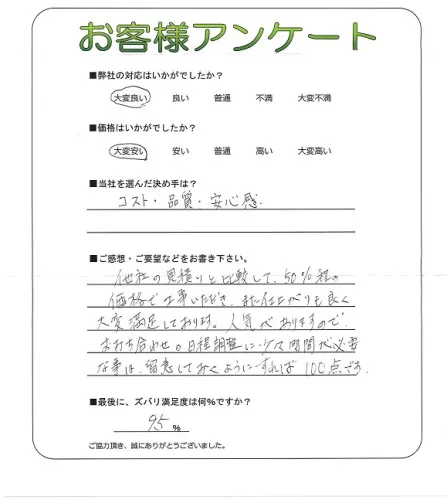 お客様アンケート
■弊社の対応はいかがでしたか？
大変良い 良い 普通 不満 大変不満
■価格はいかがでしたか？
大変安い 安い 普通 高い 大変高い
■当社を選んだ決め手は？
コスト・品質・安心感.
■ご感想・ご要望などをお書き下さい。
他社の見積りと比較して、50%程の
価格で工事いただき、また仕上がりも良く
大変満足しております。人気がありますので
お打ち合わせ。日程調整に少々時間が必要
な事は、留意しておくようにすれば100点です.
■最後に、ズバリ満足度は何%ですか？
95 %
ご協力頂き、誠にありがとうございました。